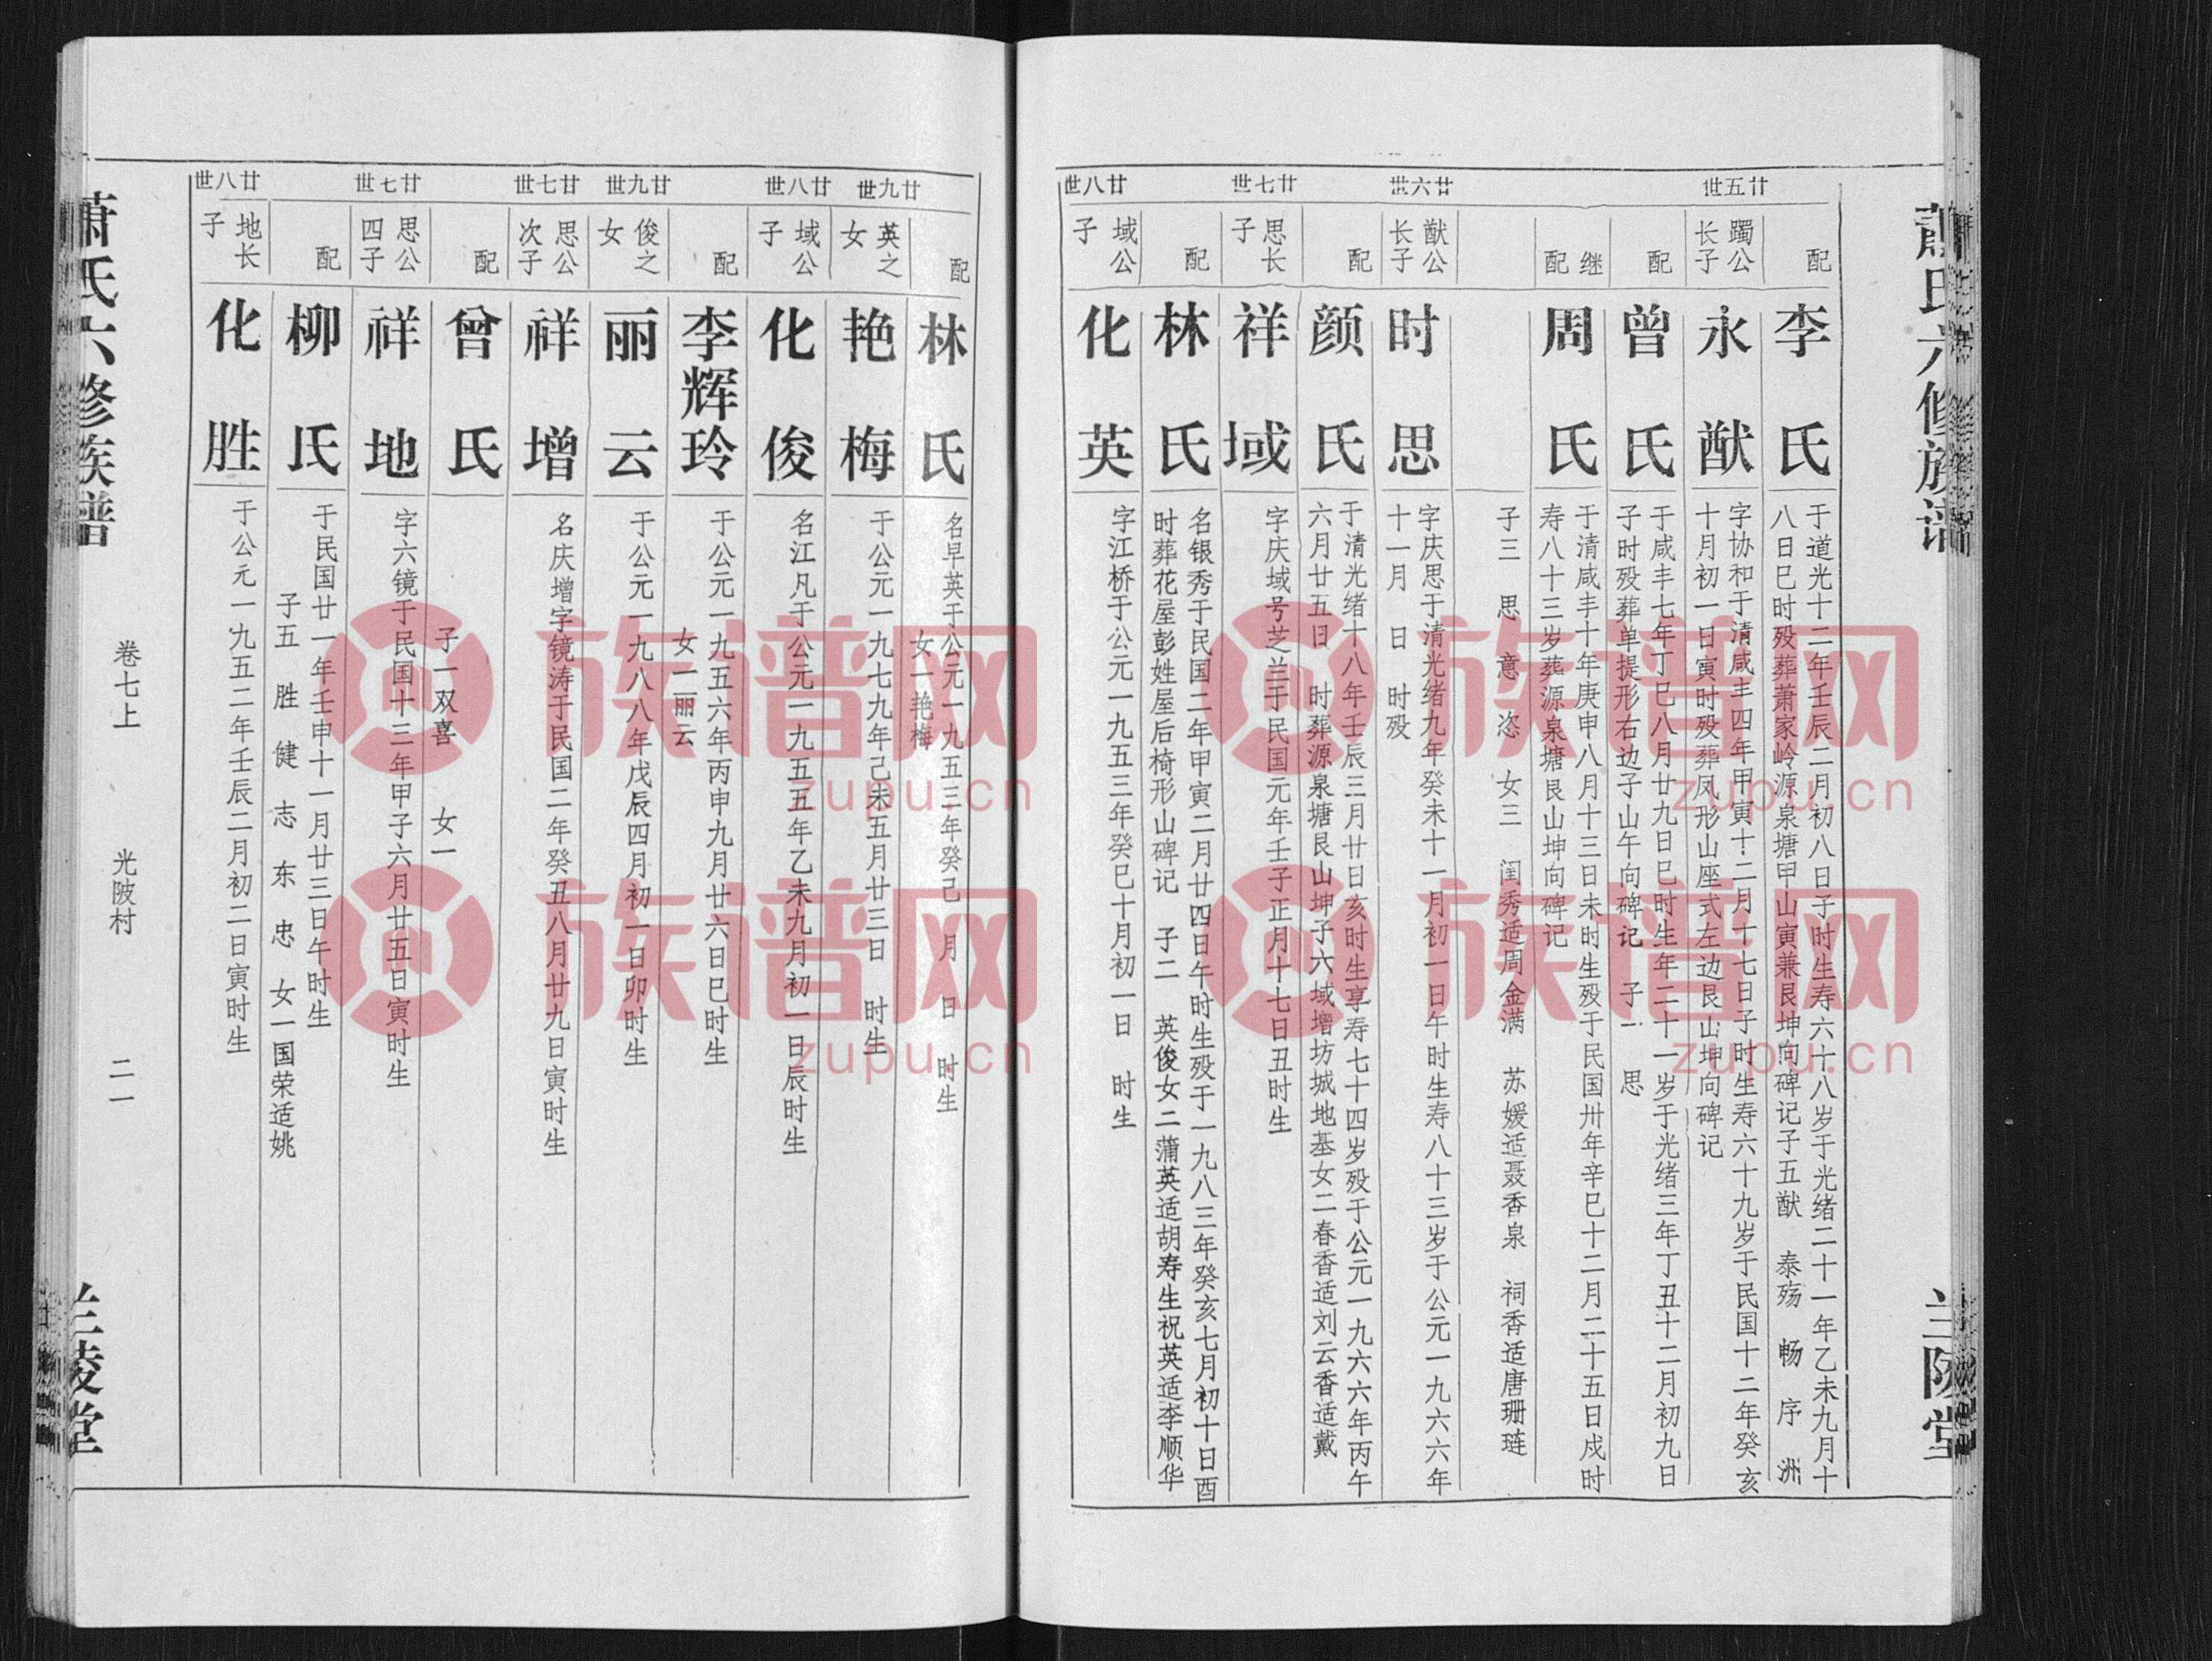 萧氏六修族谱
兰陵堂
廿五世
配
李氏
于道光十二年壬辰二月初八日子时生寿六十八岁于光绪二十一年乙未九月十
八日巳时殁葬萧家岭源泉塘甲山寅兼艮坤向碑记子五猷 泰殇 畅 序 洲
躅公
长子
永猷
字协和于清咸丰四年甲寅十二月十七日子时生寿六十九岁于民国十二年癸亥
十月初一日寅时殁葬凤形山座式左边艮山坤向碑记
配
曾氏
于咸丰七年丁巳八月廿九日巳时生年二十一岁于光绪三年丁丑十二月初九日
子时殁葬单提形右边子山午向碑记 子一 思
继
配
周氏
于清咸丰十年庚申八月十三日未时生殁于民国卅年辛巳十二月二十五日戍时
寿八十三岁葬源泉塘艮山坤向碑记
子三 思 意 恣 女三 闺秀适周金满 苏媛适聂香泉 祠香适唐珊琏
廿六世
猷公
长子
时思
字庆思于清光绪九年癸未十一月初一日午时生寿八十三岁于公元一九六六年
十一月 日 时殁
配
颜氏
于清光绪十八年壬辰三月廿日亥时生享寿七十四岁殁于公元一九六六年丙午
六月廿五日 时葬源泉塘艮山坤子六域增坊城地基女二春香适刘云香适戴
廿七世
思长
子
祥域
字庆域号芝兰于民国元年壬子正月十七日丑时生
配
林氏
名银秀于民国二年甲寅二月廿四日午时生殁于一九八三年癸亥七月初十日酉
时葬花屋彭姓屋后椅形山碑记 子二 英俊女二蒲英适胡寿生祝英适李顺华
廿八世
域公
子
化英
字江桥于公元一九五三年癸巳十月初一日 时生
配
林氏
名早英于公元一九五三年癸己 月 日 时生
女一艳梅
廿九世
英之
女
艳梅
于公元一九七九年己未五月廿三日 时生
廿八世
域公
子
化俊
名江凡于公元一九五五年乙未九月初一日辰时生
配
李辉玲
于公元一九五六年丙申九月廿六日巳时生
女一丽云
廿九世
俊之
女
丽云
于公元一九八八年戊辰四月初一日卯时生
廿七世
思公
次子
祥增
名庆增字镜涛于民国二年癸丑八月廿九日寅时生
配
曾氏
子一双喜 女一
廿七世
思公
四子
祥地
字六镜于民国十三年甲子六月廿五日寅时生
配
柳氏
于民国廿一年壬申十一月廿三日午时生
子五 胜 健 志 东 忠 女一国荣适姚
廿八世
地长
子
化胜
于公元一九五二年壬辰二月初二日寅时生
萧氏六修族谱
卷七上
光陂村
二一
兰陵堂
族谱网
zupu.cn
族谱网
zupu.cn
族谱网
zupu.cn
族谱网
zupu.cn